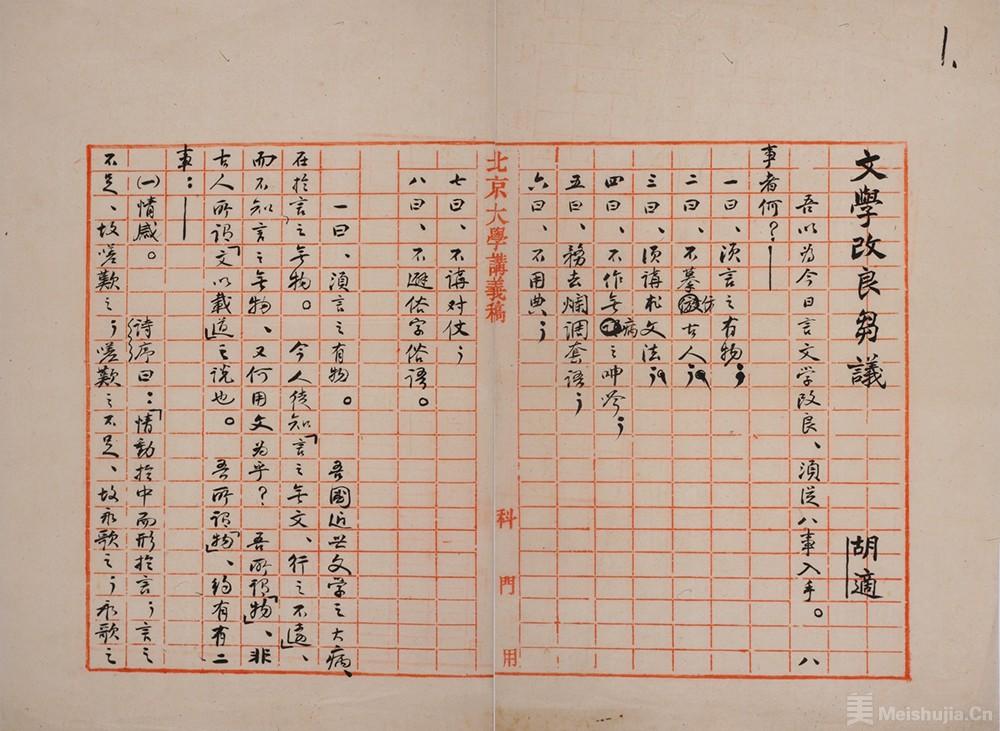 1.
文學改良芻議　胡適
吾以為今日言文学改良、須從八事入手。　八
事者何？——
一曰、須言之有物；
二曰、不摹仿古人；
三曰、須講求文法；
四曰、不作無病之呻吟；
五曰、務去爛調套語；
六曰、不用典；
北京大學講義稿　科門用
七曰、不講对仗；
八曰、不避俗字俗語。
一曰、須言之有物。　吾國近世文学之大病、
在於言之無物。　今人徒知「言之無文、行之不遠」、
而不知言之無物、又何用文為乎？　吾所謂「物」、非
古人所謂「文以載道」之说也。　吾所謂「物」、約有有二
事：——
㈠情感。　詩序曰：「情動於中而形於言；言之
不足、故嗟歎之；嗟歎之不足、故永歌之；永歌之
美 Meishujia.Cn